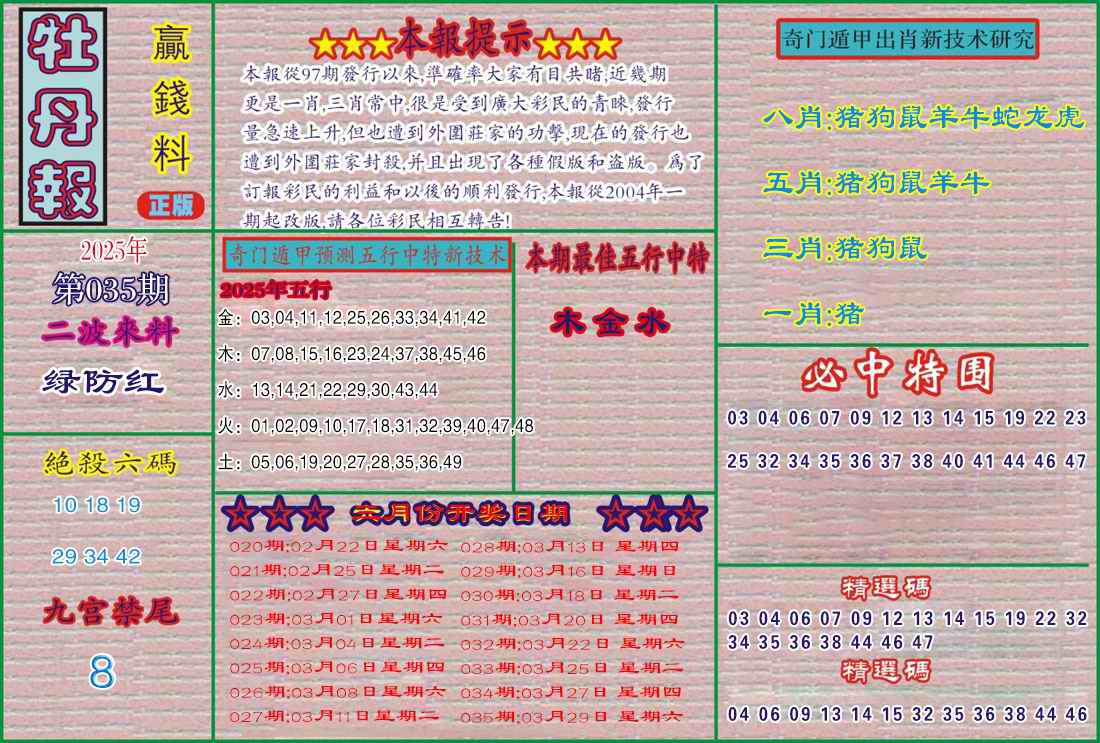 牡丹報
贏錢料
正版
2025年
第035期
二波來料
绿防红
絕殺六碼
10 18 19
29 34 42
九宫禁尾
8
★★★本報提示★★★
本報從97期發行以來,準確率大家有目共睹,近幾期
更是一肖,三肖常中,很是受到廣大彩民的青睞,發行
量急速上升,但也遭到外圍莊家的功擊,現在的發行也
遭到外圍莊家封殺,并且出現了各種假版和盗版。爲了
訂報彩民的利益和以後的順利發行,本報從2004年一
期起改版,請各位彩民相互轉告!
奇门遁甲预测五行中特新技术
2025年五行
金：03,04,11,12,25,26,33,34,41,42
木：07,08,15,16,23,24,37,38,45,46
水：13,14,21,22,29,30,43,44
火：01,02,09,10,17,18,31,32,39,40,47,48
土：05,06,19,20,27,28,35,36,49
本期最佳五行中特
木金水
☆☆☆六月份开奖日期☆☆☆
020期:02月22日星期六 028期:03月13日 星期四
021期:02月25日星期二 029期:03月16日 星期日
022期:02月27日星期四 030期:03月18日 星期二
023期:03月01日星期六 031期:03月20日 星期四
024期:03月04日星期二 032期:03月22日 星期六
025期:03月06日星期四 033期:03月25日 星期二
026期:03月08日星期六 034期:03月27日 星期四
027期:03月11日星期二 035期:03月29日 星期六
奇门遁甲出肖新技术研究
八肖:猪狗鼠羊牛蛇龙虎
五肖:猪狗鼠羊牛
三肖:猪狗鼠
一肖:猪
必中特围
03 04 06 07 09 12 13 14 15 19 22 23
25 32 34 35 36 37 38 40 41 44 46 47
精選碼
03 04 06 07 09 12 13 14 15 19 22 32
34 35 36 38 44 46 47
精選碼
04 06 09 13 14 15 32 35 36 38 44 46